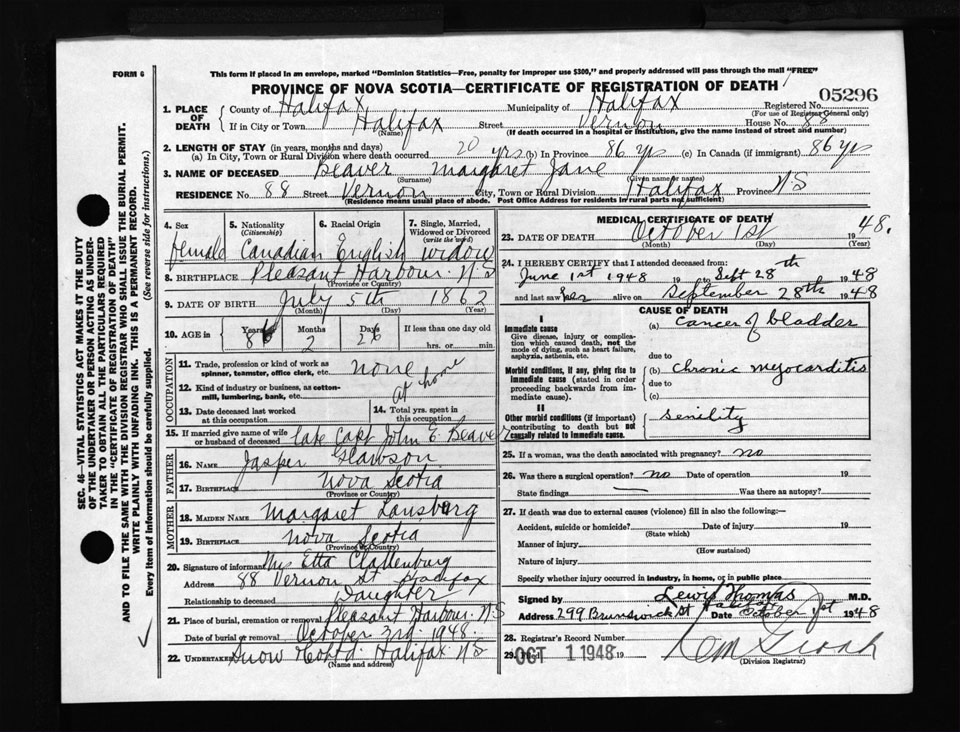 FORM 6
This form if placed in an envelope, marked "Dominion Statistics—Free, penalty for improper use $300," and properly addressed will pass through the mail "FREE"
PROVINCE OF NOVA SCOTIA—CERTIFICATE OF REGISTRATION OF DEATH
05296
1. PLACE OF DEATH County of Halifax Municipality of Halifax Registered No.
(For use of Registrar General only)
If in City or Town Halifax Street Vernon House No. 88
(Name) (If death occurred in a hospital or institution, give the name instead of street and number)
2. LENGTH OF STAY (in years, months and days)
(a) In City, Town or Rural Division where death occurred 20 yrs (b) In Province 86 yrs (c) In Canada (if immigrant) 86 yrs
3. NAME OF DECEASED Beaver Margaret Jane
(Surname) (Given name or names)
RESIDENCE No. 88 Street Vernon City, Town or Rural Division Halifax Province N S
(Residence means usual place of abode. Post Office Address for residents in rural parts not sufficient)
4. Sex female
5. Nationality (Citizenship) Canadian
6. Racial Origin English
7. Single, Married, Widowed or Divorced (write the word) widow
8. BIRTHPLACE Pleasant Harbour N.S
(Province or Country)
9. DATE OF BIRTH July 5th 1862
(Month) (Day) (Year)
10. AGE in Years 86 Months 2 Days 26 If less than one day hrs. or min.
OCCUPATION
11. Trade, profession or kind of work as spinner, teamster, office clerk, etc. none
12. Kind of industry or business, as cotton-mill, lumbering, bank, etc. at home
13. Date deceased last worked at this occupation
14. Total yrs. spent in this occupation
15. If married give name of wife or husband of deceased Late Capt John E. Beaver
FATHER
16. NAME Jasper Glawson
17. BIRTHPLACE Nova Scotia
(Province or Country)
MOTHER
18. MAIDEN NAME Margaret
19. BIRTHPLACE Nova Scotia
(Province or Country)
20. Signature of informant Mrs Etta Clattenburg
Address 88 Vernon St Halifax
Relationship to deceased Daughter
21. Place of burial, cremation or removal Pleasant Harbour N.S
Date of burial or removal October 3rd 1948
22. Undertaker Snow Co Ltd. Halifax N S
(Name and address)
MEDICAL CERTIFICATE OF DEATH
23. DATE OF DEATH October 1st 1948.
(Month) (Day) (Year)
24. I HEREBY CERTIFY that I attended deceased from:
June 1st 1948 to Sept 28th 1948
and last saw her alive on September 28th 1948
CAUSE OF DEATH
I
Immediate cause
Give disease, injury or complication which caused death, not the mode of dying, such as heart failure, asphyxia, asthenia, etc.
(a) Cancer of bladder
due to
Morbid conditions, if any, giving rise to immediate cause (stated in order proceeding backwards from immediate cause).
(b) Chronic myocarditis
due to
(c)
II
Other morbid conditions (if important) contributing to death but not causally related to immediate cause.
Senility
25. If a woman, was the death associated with pregnancy? no
26. Was there a surgical operation? no Date of operation 19
State findings — Was there an autopsy?
27. If death was due to external causes (violence) fill in also the following:—
Accident, suicide or homicide? Date of injury 19
(State which)
Manner of injury
(How sustained)
Nature of injury
Specify whether injury occurred in industry, in home, or in public place
Signed by Lewis Thomas M.D.
Address 299 Brunswick St Halifax Date October 1st 1948
28. Registrar's Record Number
29. OCT 1 1948 19
(Division Registrar)
SEC. 46—VITAL STATISTICS ACT MAKES IT THE DUTY
OF THE UNDERTAKER OR PERSON ACTING AS UNDER-
TAKER TO OBTAIN ALL THE PARTICULARS REQUIRED
IN THE "CERTIFICATE OF REGISTRATION OF DEATH"
AND TO FILE THE SAME WITH THE DIVISION REGISTRAR WHO SHALL ISSUE THE BURIAL PERMIT.
WRITE PLAINLY WITH UNFADING INK. THIS IS A PERMANENT RECORD.
Every item of information should be carefully supplied. (See reverse side for instructions.)